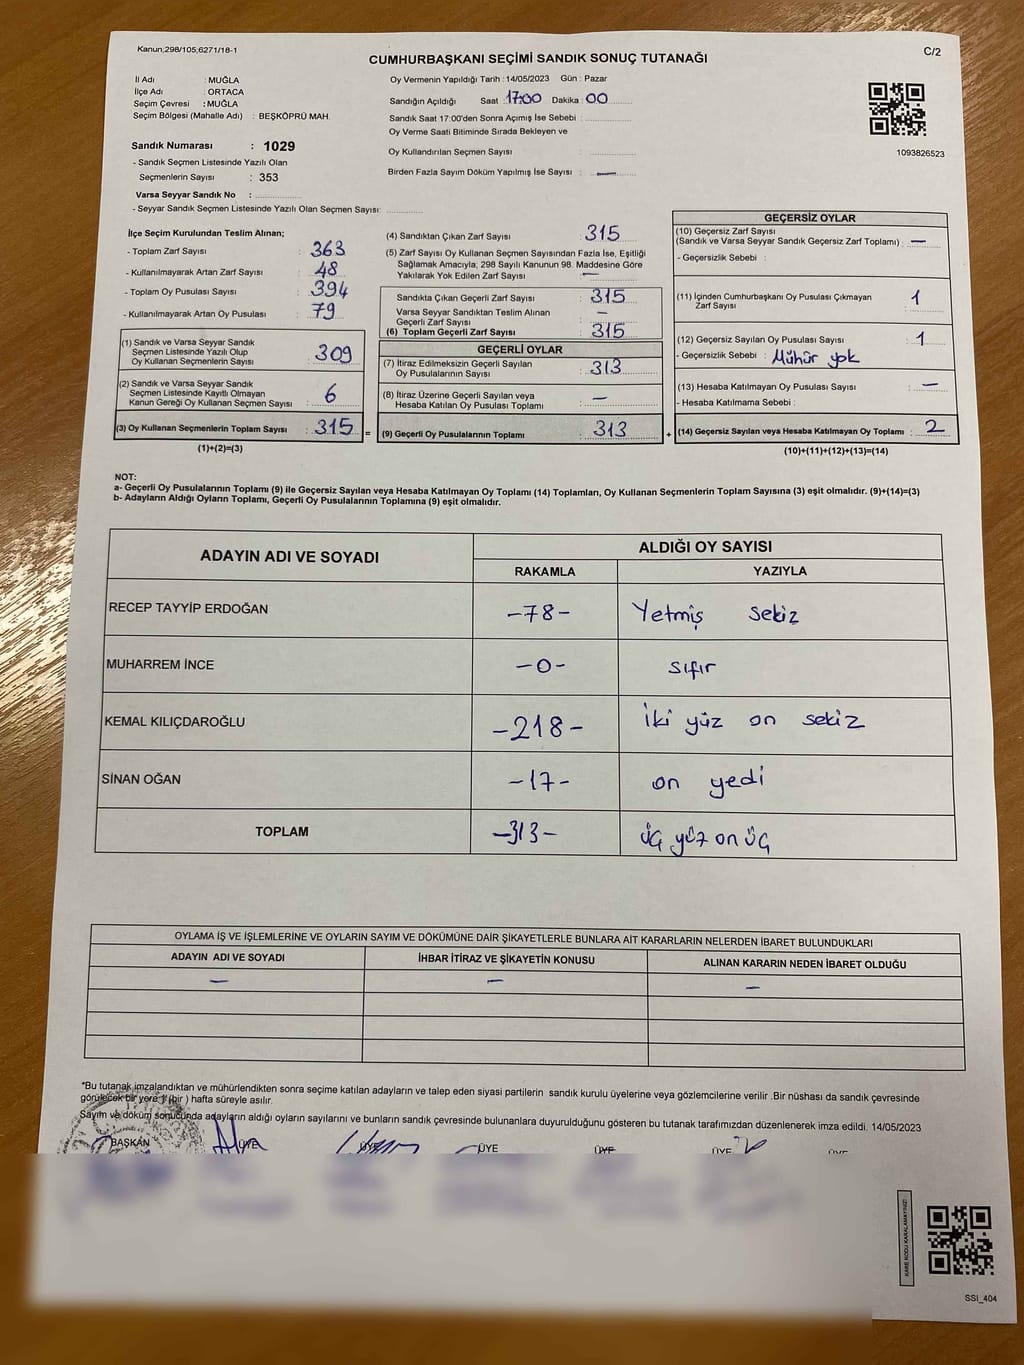 Kanun;298/105;6271/18-1
CUMHURBAŞKANI SEÇİMİ SANDIK SONUÇ TUTANAĞI
C/2
İl Adı : MUĞLA
İlçe Adı : ORTACA
Seçim Çevresi : MUĞLA
Seçim Bölgesi (Mahalle Adı) : BEŞKÖPRÜ MAH.
Oy Vermenin Yapıldığı Tarih : 14/05/2023 Gün : Pazar
Sandığın Açıldığı Saat : 17:00 Dakika : 00
Sandık Saat 17:00'den Sonra Açımış İse Sebebi :
Oy Verme Saati Bitiminde Sırada Bekleyen ve
Oy Kullandırılan Seçmen Sayısı :
Birden Fazla Sayım Döküm Yapılmış İse Sayısı : —
1093826523
Sandık Numarası : 1029
- Sandık Seçmen Listesinde Yazılı Olan
Seçmenlerin Sayısı : 353
Varsa Seyyar Sandık No :
- Seyyar Sandık Seçmen Listesinde Yazılı Olan Seçmen Sayısı:
İlçe Seçim Kurulundan Teslim Alınan;
- Toplam Zarf Sayısı : 363
- Kullanılmayarak Artan Zarf Sayısı : 48
- Toplam Oy Pusulası Sayısı : 394
- Kullanılmayarak Artan Oy Pusulası : 79
(1) Sandık ve Varsa Seyyar Sandık
Seçmen Listesinde Yazılı Olup
Oy Kullanan Seçmenlerin Sayısı : 309
(2) Sandık ve Varsa Seyyar Sandık
Seçmen Listesinde Kayıtlı Olmayan
Kanun Gereği Oy Kullanan Seçmen Sayısı : 6
(3) Oy Kullanan Seçmenlerin Toplam Sayısı : 315
(1)+(2)=(3)
(4) Sandıktan Çıkan Zarf Sayısı : 315
(5) Zarf Sayısı Oy Kullanan Seçmen Sayısından Fazla İse, Eşitliği
Sağlamak Amacıyla; 298 Sayılı Kanunun 98. Maddesine Göre
Yakılarak Yok Edilen Zarf Sayısı : —
Sandıkta Çıkan Geçerli Zarf Sayısı : 315
Varsa Seyyar Sandıktan Teslim Alınan
Geçerli Zarf Sayısı : —
(6) Toplam Geçerli Zarf Sayısı : 315
GEÇERLİ OYLAR
(7) İtiraz Edilmeksizin Geçerli Sayılan
Oy Pusulalarının Sayısı : 313
(8) İtiraz Üzerine Geçerli Sayılan veya
Hesaba Katılan Oy Pusulası Toplamı : —
= (9) Geçerli Oy Pusulalarının Toplamı : 313
GEÇERSİZ OYLAR
(10) Geçersiz Zarf Sayısı
(Sandık ve Varsa Seyyar Sandık Geçersiz Zarf Toplamı) : —
- Geçersizlik Sebebi :
(11) İçinden Cumhurbaşkanı Oy Pusulası Çıkmayan
Zarf Sayısı : 1
(12) Geçersiz Sayılan Oy Pusulası Sayısı : 1
- Geçersizlik Sebebi : Mühür yok
(13) Hesaba Katılmayan Oy Pusulası Sayısı : —
- Hesaba Katılmama Sebebi :
+ (14) Geçersiz Sayılan veya Hesaba Katılmayan Oy Toplamı : 2
(10)+(11)+(12)+(13)=(14)
NOT:
a- Geçerli Oy Pusulalarının Toplamı (9) ile Geçersiz Sayılan veya Hesaba Katılmayan Oy Toplamı (14) Toplamları, Oy Kullanan Seçmenlerin Toplam Sayısına (3) eşit olmalıdır. (9)+(14)=(3)
b- Adayların Aldığı Oyların Toplamı, Geçerli Oy Pusulalarının Toplamına (9) eşit olmalıdır.
ADAYIN ADI VE SOYADI ALDIĞI OY SAYISI
RAKAMLA YAZIYLA
RECEP TAYYİP ERDOĞAN -78- Yetmiş sekiz
MUHARREM İNCE -0- sıfır
KEMAL KILIÇDAROĞLU -218- İki yüz on sekiz
SİNAN OĞAN -17- on yedi
TOPLAM -313- üç yüz on üç
OYLAMA İŞ VE İŞLEMLERİNE VE OYLARIN SAYIM VE DÖKÜMÜNE DAİR ŞİKAYETLERLE BUNLARA AİT KARARLARIN NELERDEN İBARET BULUNDUKLARI
ADAYIN ADI VE SOYADI İHBAR İTİRAZ VE ŞİKAYETİN KONUSU ALINAN KARARIN NEDEN İBARET OLDUĞU
— — —
*Bu tutanak imzalandıktan ve mühürlendikten sonra seçime katılan adayların ve talep eden siyasi partilerin sandık kurulu üyelerine veya gözlemcilerine verilir .Bir nüshası da sandık çevresinde
görülecek bir yere 1 (bir ) hafta süreyle asılır.
Sayım ve döküm sonucunda adayların aldığı oyların sayılarını ve bunların sandık çevresinde bulunanlara duyurulduğunu gösteren bu tutanak tarafımızdan düzenlenerek imza edildi. 14/05/2023
BAŞKAN ÜYE ÜYE ÜYE ÜYE ÜYE ÜYE
KARE KODU KARALAMAYINIZ!
SSI_404